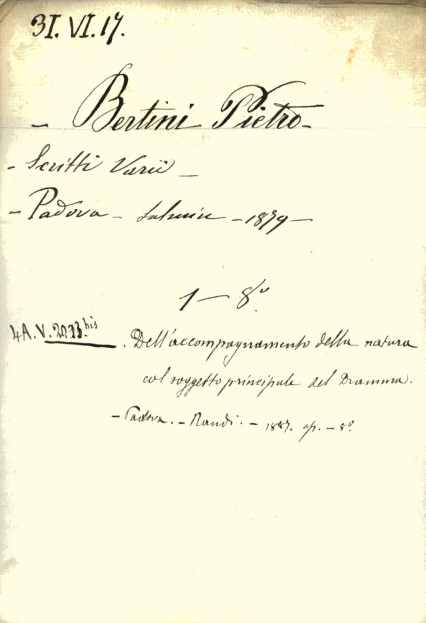 31. VI. 17.
- Bertini Pietro -
- Scritti Varii -
- Padova - Salmin - 1879 -
1 - 8º
4A. V. 2033 bis
. Dell'accompagnamento della natura
col soggetto principale del Dramma.
- Padova. - Randi. - 1887. op. - 8º